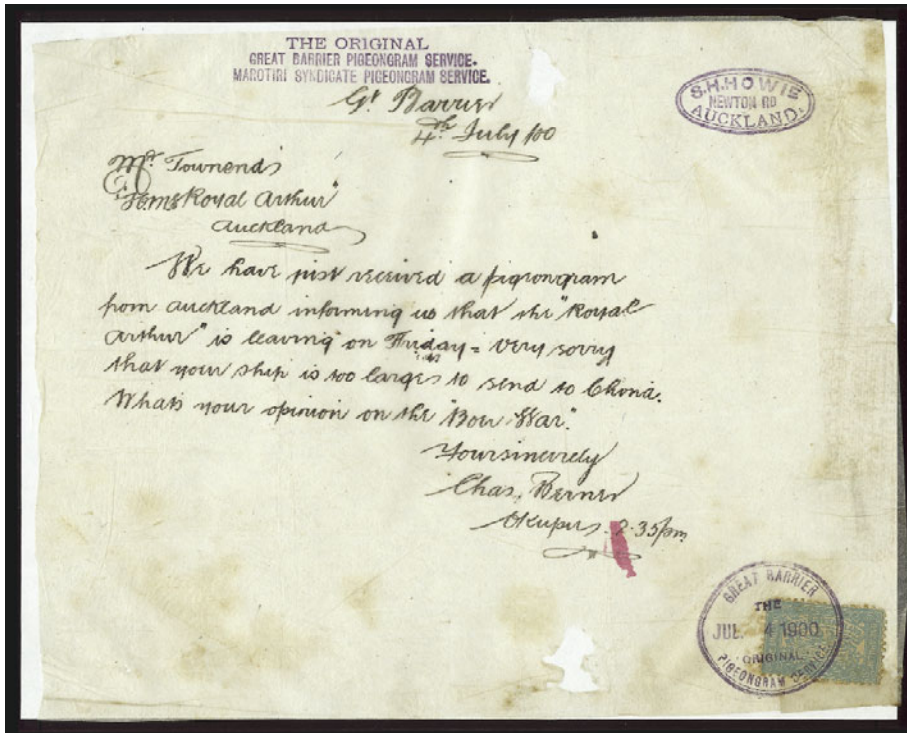 THE ORIGINAL
GREAT BARRIER PIGEONGRAM SERVICE.
MAROTIRI SYNDICATE PIGEONGRAM SERVICE.
S.H.HOWIE
NEWTON RD
AUCKLAND.
Gt Barrier
4th July /00
Mr. Townend
H.M.S "Royal Arthur"
Auckland
We have just received a pigeongram
from Auckland informing us that the "Royal
Arthur" is leaving on Friday = very sorry
that your ship is too large to send to China.
Whats your opinion on the "Boer War".
Yours sincerely
Chas. Werner
Okupu. 2.35pm
GREAT BARRIER
THE
JUL 4 1900
ORIGINAL
PIGEONGRAM SERVICE